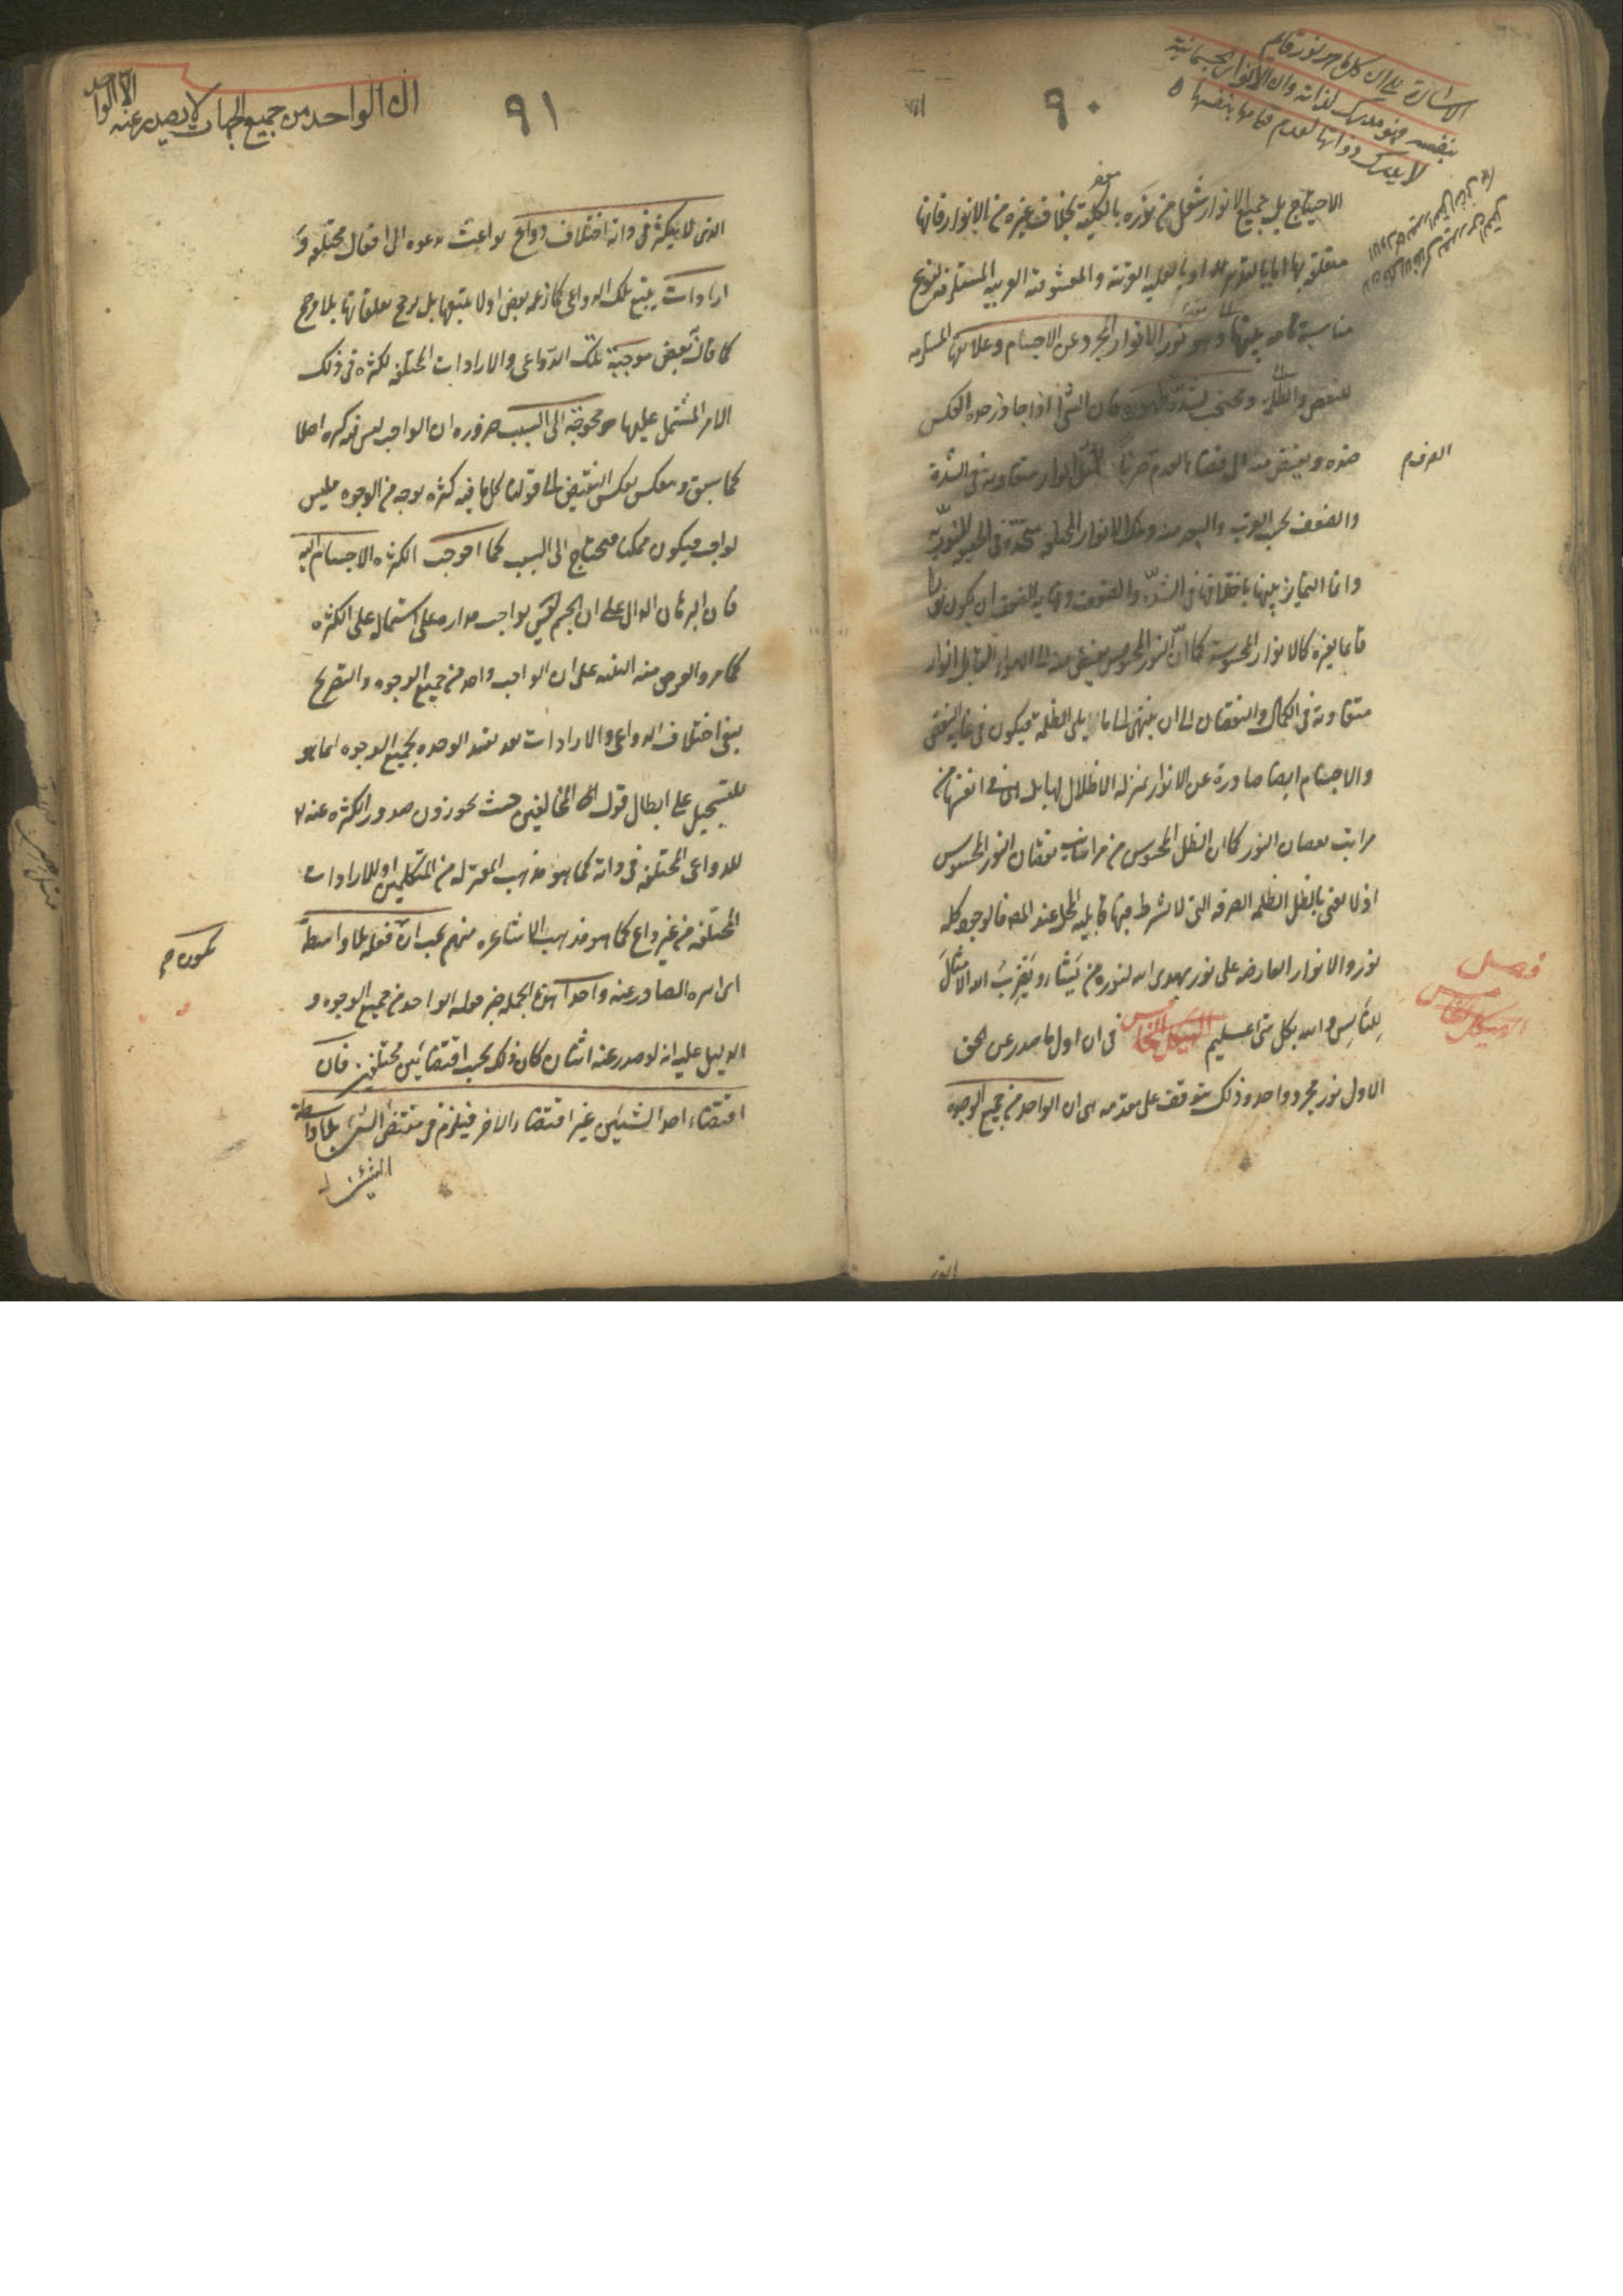 ٩٠
الاشارة الى ان كل ما هو نور قايم
بنفسه فهو مدرك لذاته وان الانوار الجسمانية
لا يدرك ذواتها لعدم قيامها بنفسها
الاحتياج بل جميع الانوار شعل من نوره بالكلية بخلاف غيره من الانوار فانها
متعلقة بها اما بالتدبير او بالعلية القريبة والمعشوقية القريبة المستلزمة لنوع
مناسبة تامة بينها وهو نور الانوار المجرد عن الاجسام وعلايقها المستلزمة
للنقص والظل ومحتجب لشدة ظهوره فان الشئ اذا جاوز حده انعكس
ضده
والضعف بحسب القرب والبعد منه وتلك الانوار المختلفة متحدة في الحقيقة النورية
وانما التمايز بينها باختلافها في الشدة والضعف وغاية الضعف ان يكون نورا
قائما بغيره كالانوار المحسوسة كما ان النور المحسوس ينبسط منه الى الهواء القابل انوار
متفاوتة في الكمال والنقصان الى ان ينتهى الى ما يلى الظلمة فيكون في غاية النقص
والاجسام ايضا صادرة عن الانوار بمنزلة الاظلال لها بل هى في انفسها من
مراتب نقصان النور كما ان الظل المحسوس من مراتب نقصان النور المحسوس
اذ لا نعنى بالظل الظلمة الصرفة التى لا يشترط فيها قابلية المحل عند المص فالوجود كله
نور والانوار العارضة على نور يهدى الله لنوره من يشاء ويضرب الله الامثال
للناس والله بكل شئ عليم الهيكل الخامس في ان اول ما صدر عن الحق
الاول نور مجرد واحد وذلك يتوقف على مقدمة هى ان الواحد من جميع الوجوه
فصل
الهيكل الخامس
٩١
ان الواحد من جميع الجهات لا يصدر عنه الا الواحد
الذى لا يتكثر في ذاته اختلاف دواع بواعث تدعوه الى افعال مختلفة و
ارادات يتبع تلك الدواعى كما زعمه بعض او لا يتبعها بل يرجح تعلقاتها بلا مرجح
كما قال بعض موجبة تلك الدواعى والارادات المختلفة لكثرة في ذلك
الامر المشتمل عليها محوجة الى السبب ضرورة ان الواجب ليس فيه كثرة اصلا
كما سبق وينعكس بعكس النقيض الى قولنا كل ما فيه كثرة بوجه من الوجوه فليس
بواجب فيكون ممكنا فيحتاج الى السبب كما احوجت الكثرة الاجسام اليه
فان البرهان الدال على ان الجسم ليس بواجب مداره على اشتماله على الكثرة
كما مر والغرض منه التنبيه على ان الواجب واحد من جميع الوجوه والتصريح
بنفى اختلاف الدواعى والارادات بعد تقييد الوحدة بجميع الوجوه انما هو
للتسجيل على ابطال قول المخالفين حيث يجوزون صدور الكثرة عنه
للدواعى المختلفة في ذاته كما هو مذهب المعتزلة من المتكلمين او للارادات
المختلفة من غير داع كما هو مذهب الاشاعرة منهم يجب ان فعله بلا واسطة
اى اثره الصادر عنه واحدا هذه الجملة خبر قوله الواحد من جميع الوجوه و
الدليل عليه انه لو صدر عنه اثنان كان ذلك بحسب اقتضائين مختلفين فان
اقتضاء احد الشيئين غير اقتضاء الآخر فيلزم في مقتضى الشئ بلا واسطة